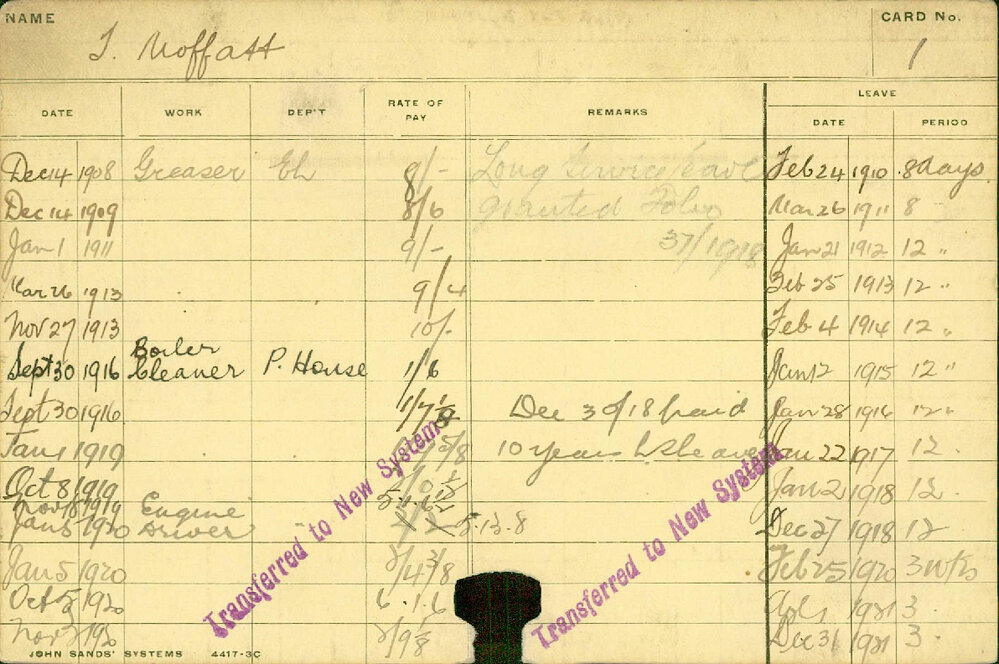 NAME CARD No.
T. Moffatt 1
LEAVE
DATE WORK DEP'T RATE OF PAY REMARKS DATE PERIOD
Dec 14 1908 Greaser Eh 8/- Long Service leave Feb 24 1910 8 days
Dec 14 1909 8/6 granted Folio Mar 26 1911 8 "
Jan 1 1911 9/- 37/1918 Jan 21 1912 12 "
Mar 26 1913 9/4 Feb 25 1913 12 "
Nov 27 1913 10/- Feb 4 1914 12 "
Boiler
Sept 30 1916 Cleaner P. House 1/6 Jan 12 1915 12 "
Sept 30 1916 1/7 Dec 30/18 paid Jan 28 1916 12 "
Jan 1 1919 10 years Jan 22 1917 12 "
Oct 8 1919 Jan 2 1918 12 "
Nov 18 1919 Engine
Jan 5 1920 Driver 5.13.8 Dec 27 1918 12
Jan 5 1920 2/4 3/8 Feb 25 1920 3 wks
Oct 1920 6.1.6 1921 3
Nov 1920 Dec 31 1921 3
Transferred to New System
Transferred to New System
JOHN SANDS' SYSTEMS 4417-3C